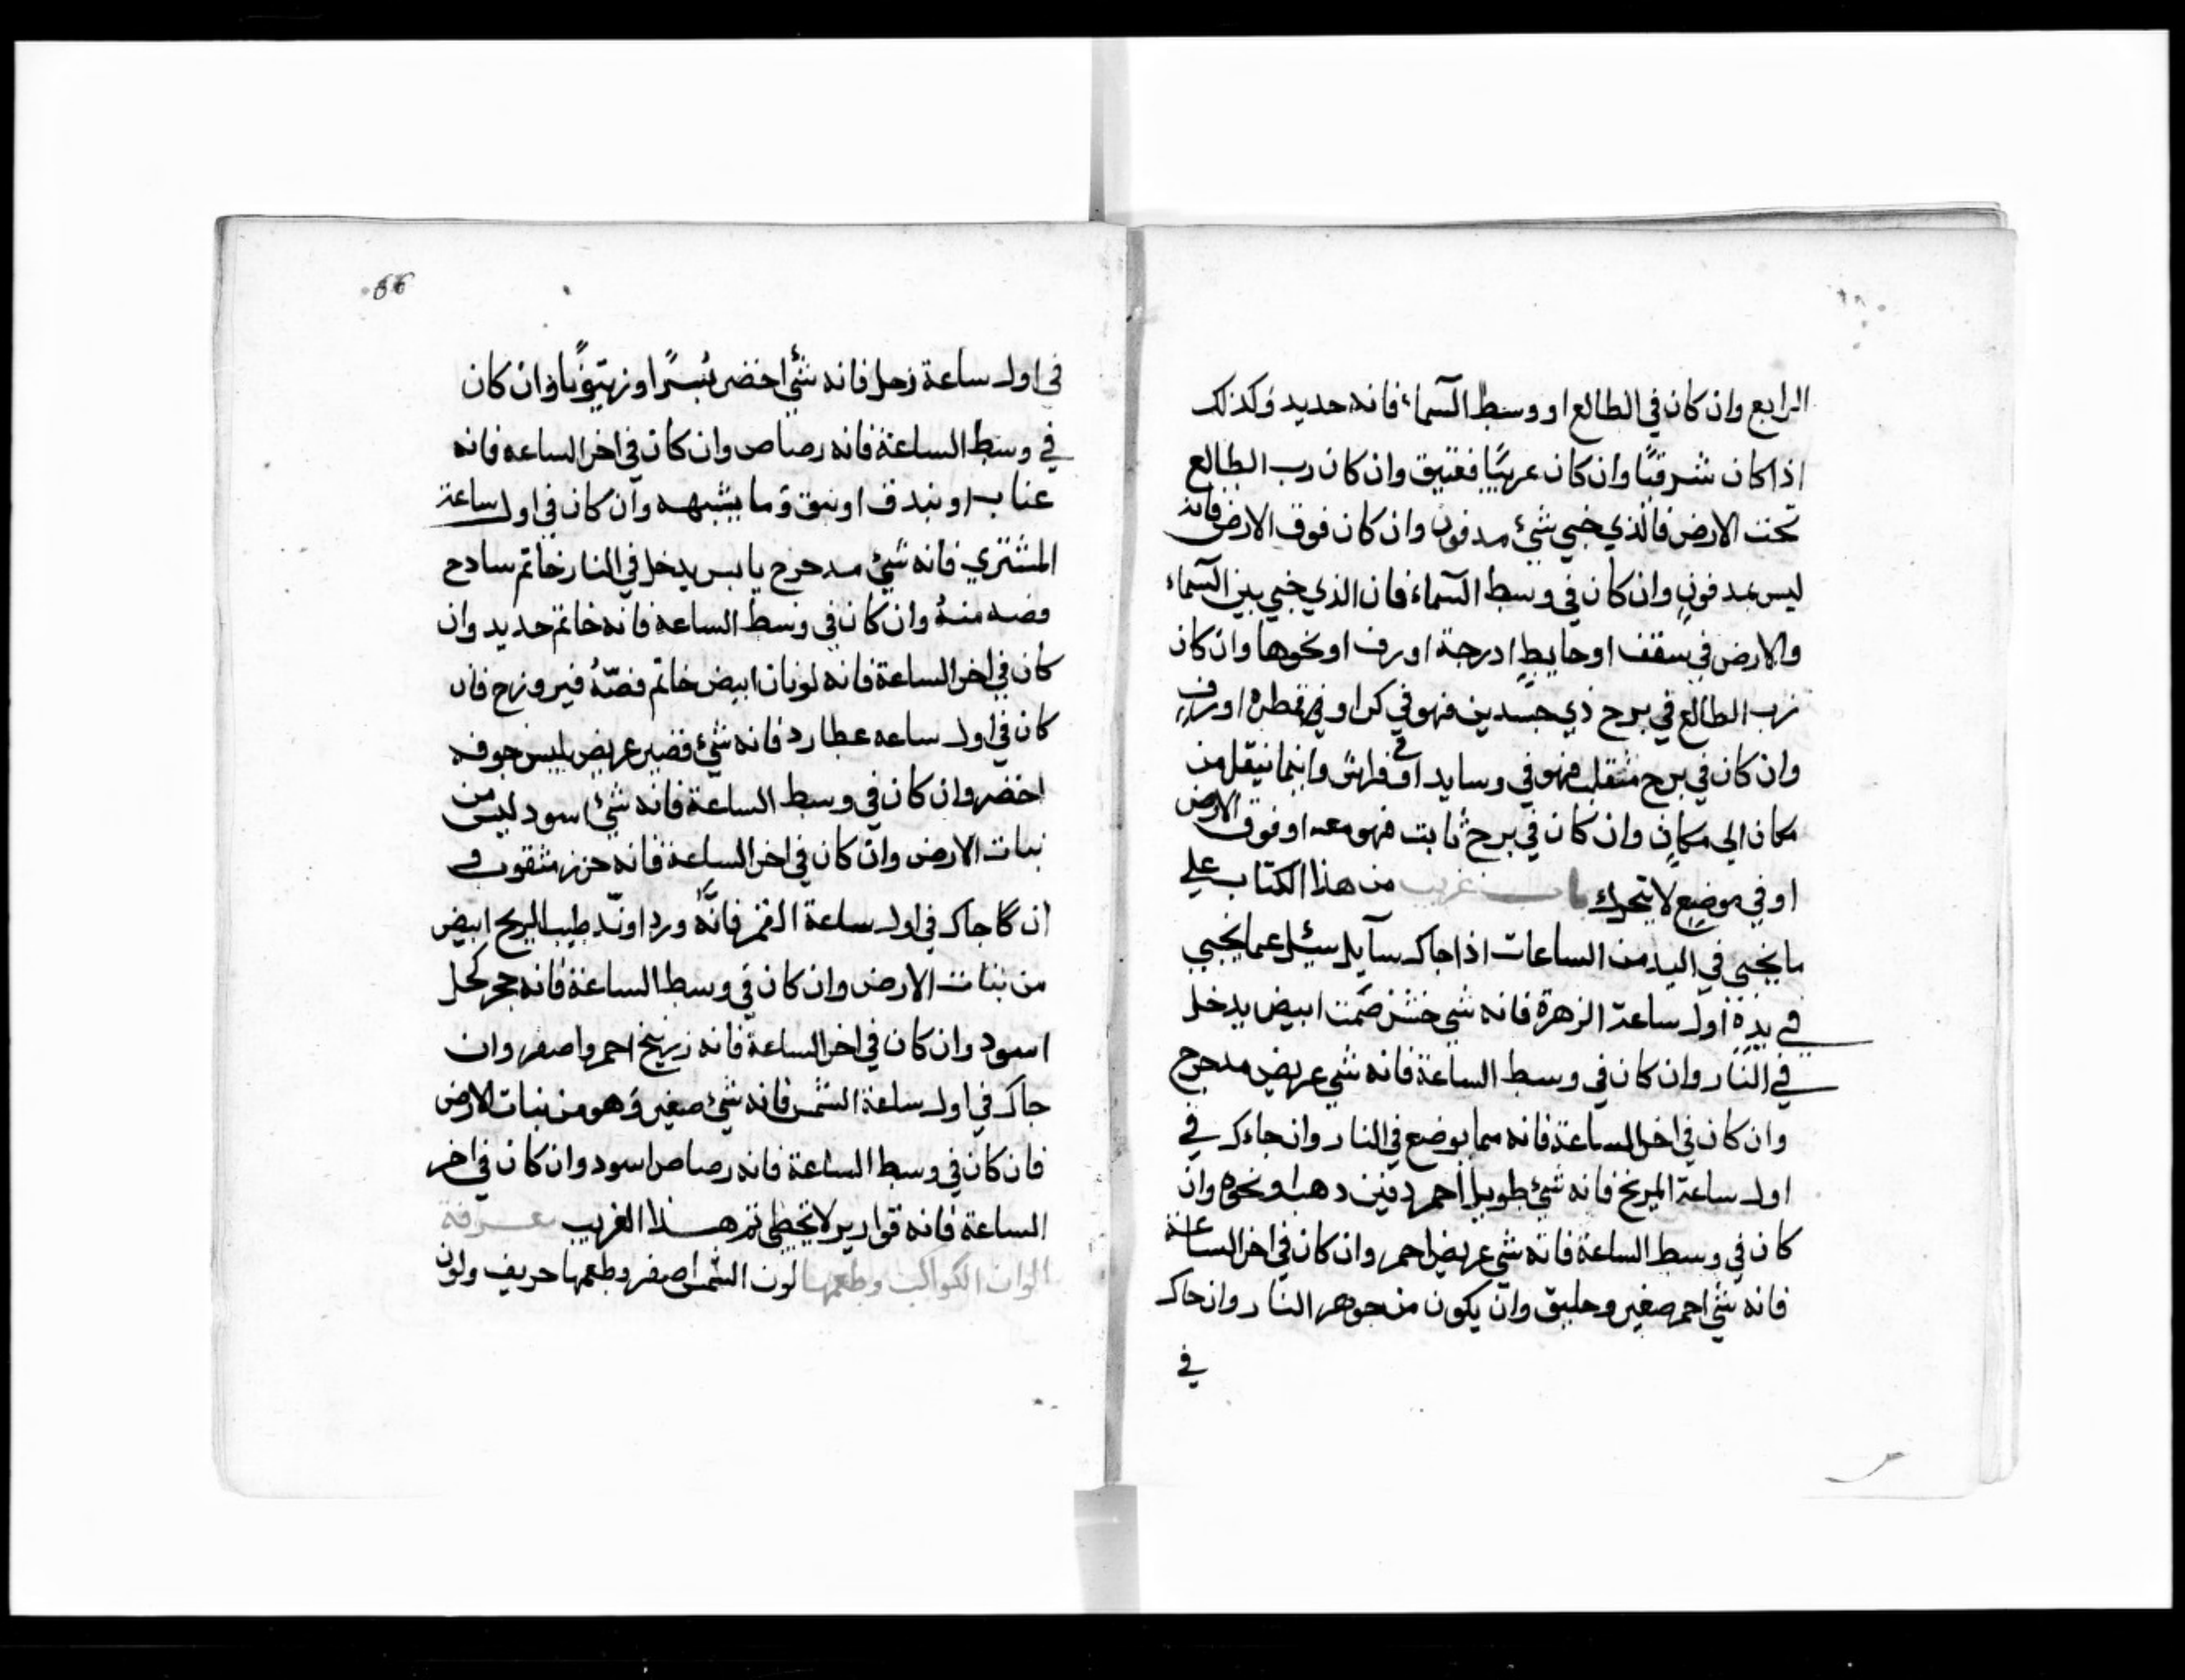 الرابع وان كان في الطالع او وسط السماء فانه حديد وكذلك
اذا كان شرقيًا وان كان غربيًا فعتيق وان كان رب الطالع
تحت الارض فالذي خبي شئ مدفون وان كان فوق الارض فانه
ليس بمدفونٍ وان كان في وسط السماء فان الذي خبي بين السماء
والارض في سقف او حايطٍ ادرجة او رف او نحوها وان كان
رب الطالع في برج ذي جسدين فهو في كرا او في قطره او رف
وان كان في برج منقلب فهو في وسايد او في فراش وانما نيقل من
مكان الي مكانٍ وان كان في برج ثابت فهو معه او فوق الارض
او في موضع لا يتحرك باب غريب من هذا الكتاب علي
ما يخبي في اليد من الساعات اذا جاك سآيل سئل عما يخبي
في يده اول ساعة الزهرة فانه شي خشن صمت ابيض يدخل
في النار وان كان في وسط الساعة فانه شي عريض مدحرج
وان كان في اخر الساعة فانه مما يوضع في النار وان جاءك في
اول ساعة المريخ فانه شئ طويل احمر دفين دهب او نحوه وان
كان في وسط الساعة فانه شي عريض احمر وان كان في اخر الساعة
فانه شي احمر صغير وحليق وان يكون من جوهر النار وان جاك
في
66
في اول ساعة زحل فانه شئ اخضر بُسرًا او زيتونًا وان كان
في وسط الساعة فانه رصاص وان كان في اخر الساعه فانه
عناب او بندق او نبق وما يشبهه وان كان في اول ساعة
المشتري فانه شئ مدحرج يابس يدخل في النار خاتم سادج
فصه منهُ وان كان في وسط الساعه فانه خاتم حديد وان
كان في اخر الساعة فانه لونان ابيض خاتم فصّهُ فيروزج فان
كان في اول ساعه عطارد فانه شئ قصير عريض يليس جوفه
اخضر وان كان في وسط الساعة فانه شئ اسود ليس من
نبات الارض وان كان في اخر الساعة فانه خرز مثقوب و
ان كا جاك في اول ساعة القمر فانه ورد او ند طيب الريح ابيض
من نبات الارض وان كان في وسط الساعة فانه حجر كحل
اسود وان كان في اخر الساعة فانه زرنيخ احمر واصفر وان
جاك في اول ساعة الشمس فانه شئ صغير وهو من نبات الارض
فان كان في وسط الساعة فانه رصاص اسود وان كان في اخر
الساعة فانه قوارير لا تخطي تم هذا الغريب معرفة
الوان الكواكب وطعمها لون الشمس اصفر وطعمها حريف ولون